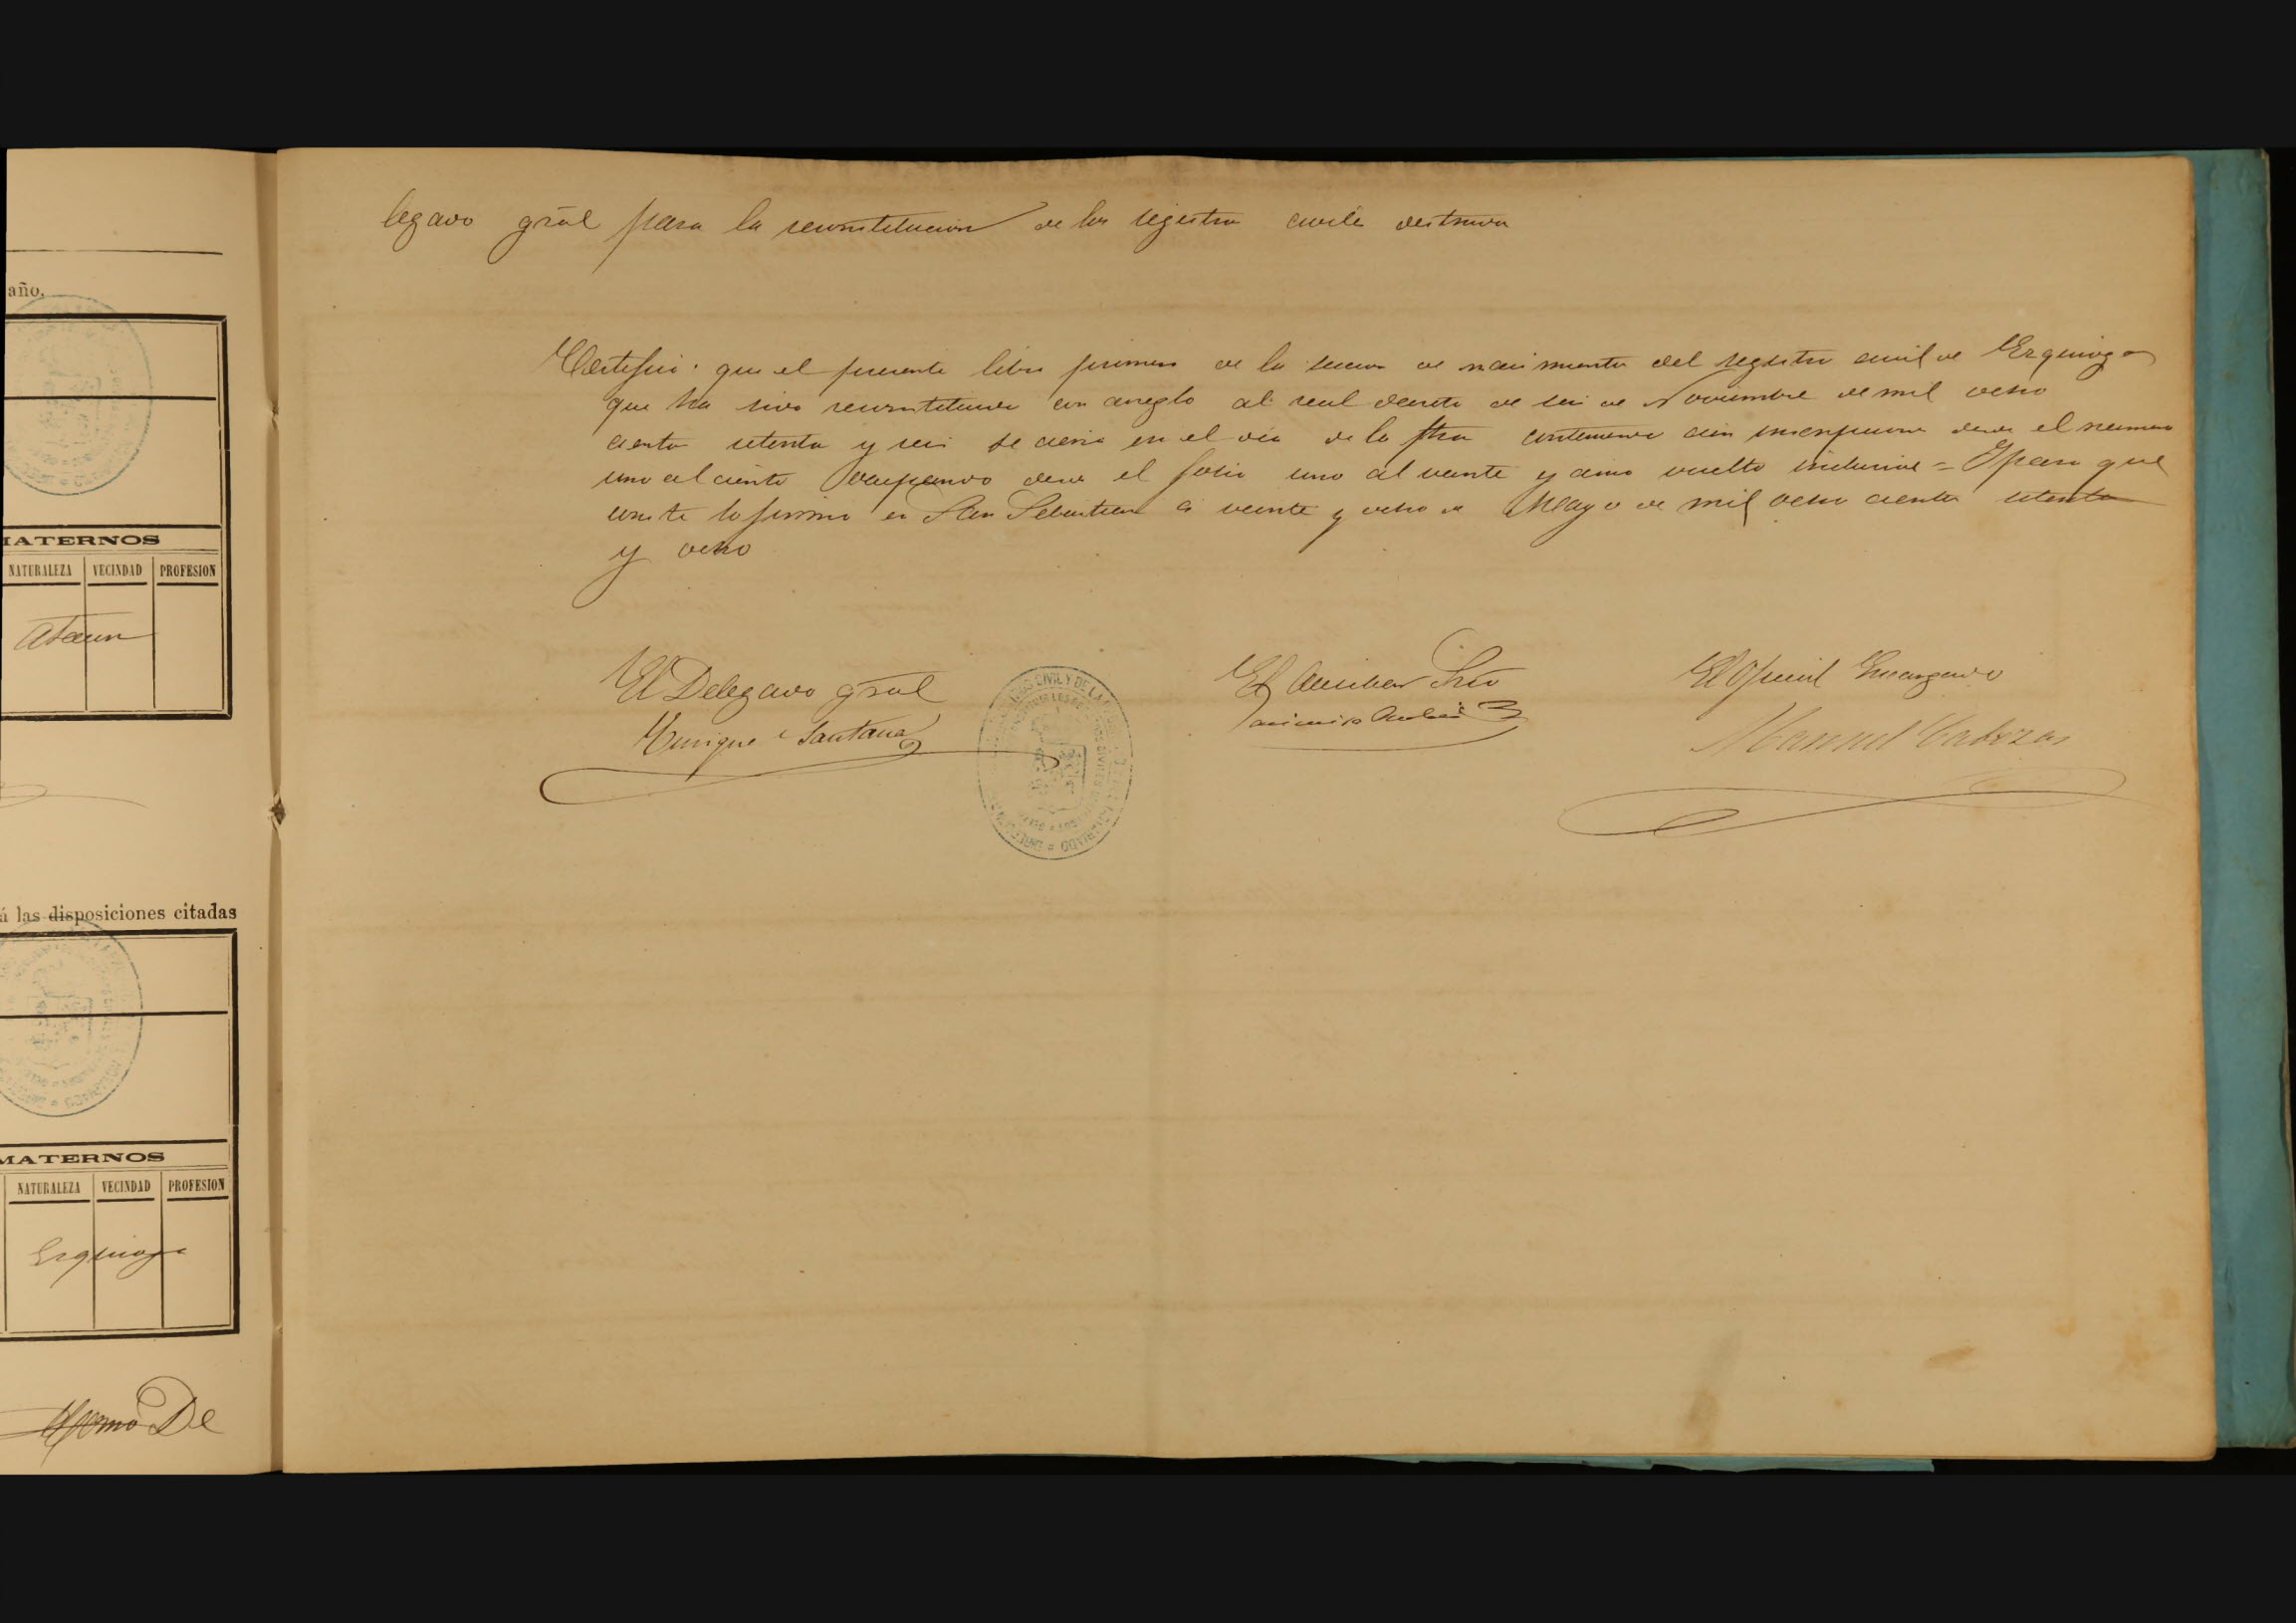 año.
MATERNOS
NATURALEZA VECINDAD PROFESION
Ataun
á las disposiciones citadas
MATERNOS
NATURALEZA VECINDAD PROFESION
Ezquioga
De
legado gral para la reconstitucion de los registros civiles destruidos
Certifico: que el presente libro primero de la seccion de nacimientos del registro civil de Ezquioga
que ha sido reconstituido con arreglo al real decreto de seis de Noviembre de mil ocho
cientos setenta y seis se cierra en el dia de la fha conteniendo cien inscripciones desde el numero
uno al ciento ocupando desde el folio uno al veinte y cinco vuelto inclusive = Y para que
conste lo firmo en San Sebastian á veinte y ocho de Mayo de mil ocho cientos setenta
y ocho
El Delegado gral
Enrique Santana
El Auxiliar Srio
El Oficial Encargado
Manuel Cabezas